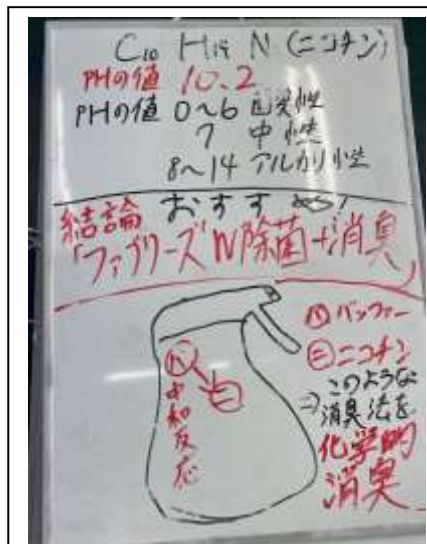 C10 H14 N (ニコチン)
PHの値 10.2
PHの値 0~6 酸性
7 中性
8~14 アルカリ性
おすすめ!
結論
「ファブリーズW除菌+消臭」
バ
ニ
中和反応
バ バッファー
ニ ニコチン
このような
⇒ 消臭法を
化学的
消臭